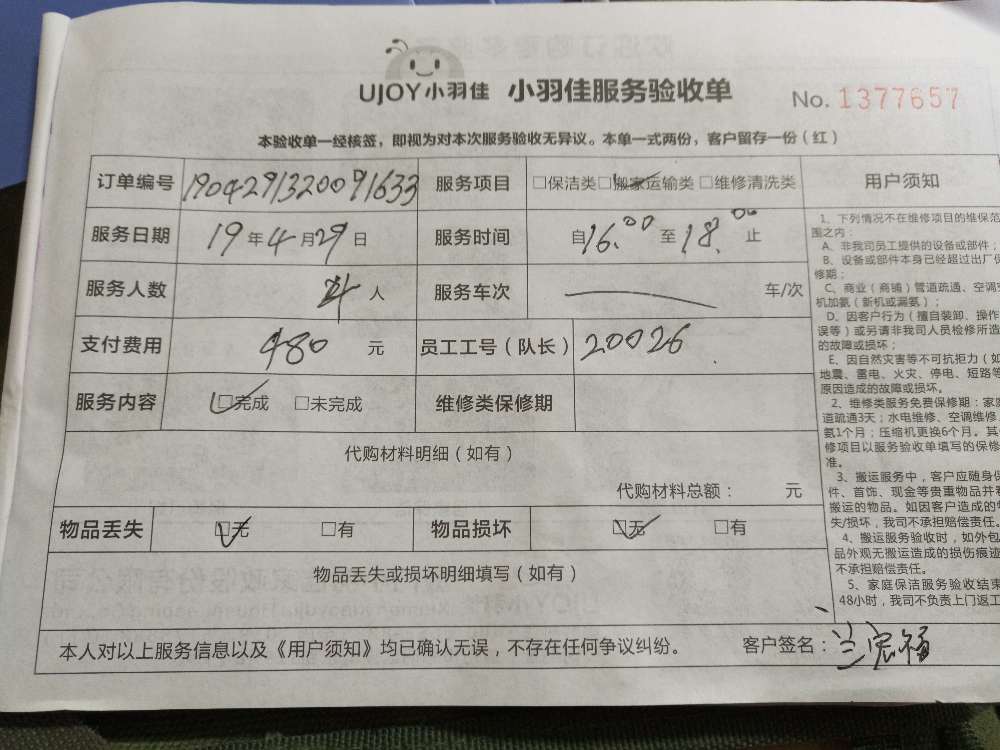 UJOY小羽佳 小羽佳服务验收单 No. 1377657
本验收单一经核签，即视为对本次服务验收无异议。本单一式两份，客户留存一份（红）
订单编号 1904291320091633 服务项目 □保洁类□搬家运输类 □维修清洗类
服务日期 19年4月29日 服务时间 自16:00至18:00止
服务人数 人 服务车次 车/次
支付费用 480 元 员工工号（队长） 20026
服务内容 □完成 □未完成 维修类保修期
代购材料明细（如有）
代购材料总额： 元
物品丢失 □无 □有 物品损坏 □无 □有
物品丢失或损坏明细填写（如有）
本人对以上服务信息以及《用户须知》均已确认无误，不存在任何争议纠纷。 客户签名：兰宏福
用户须知
1、下列情况不在维修项目的维保范
围之内：
A、非我司员工提供的设备或部件；
B、设备或部件本身已经超过出厂保
修期；
C、商业（商铺）管道疏通、空调
机加氨（新机或漏氨）；
D、因客户行为（擅自装卸、操作
误等）或另请非我司人员检修所造
的故障或损坏；
E、因自然灾害等不可抗拒力（如
地震、雷电、火灾、停电、短路等
原因造成的故障或损坏。
2、维修类服务免费保修期：家庭
道疏通3天；水电维修、空调维修
氨1个月；压缩机更换6个月。其
修项目以服务验收单填写的保修
准。
3、搬运服务中，客户应随身保
件、首饰、现金等贵重物品并
搬运的物品。如因客户造成的
失/损坏，我司不承担赔偿责任。
4、搬运服务验收时，如外包
品外观无搬运造成的损伤痕迹
不承担赔偿责任。
5、家庭保洁服务验收结束
48小时，我司不负责上门返工